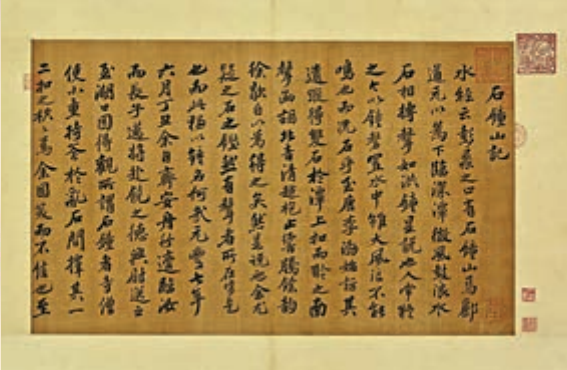 石鐘山記
水經云彭蠡之口有石鐘山焉酈
道元以為下臨深潭微風鼓浪水
石相搏聲如洪鐘是說也人常疑
之今以鐘磬置水中雖大風浪不能
鳴也而況石乎至唐李渤始訪其
遺蹤得雙石於潭上扣而聆之南
聲函胡北音清越枹止響騰餘韻
徐歇自以為得之矣然是說也余尤
疑之石之鏗然有聲者所在皆是
也而此獨以鐘名何哉元豐七年
六月丁丑余自齊安舟行適臨汝
而長子邁將赴饒之德興尉送之
至湖口因得觀所謂石鐘者寺僧
使小童持斧於亂石間擇其一
二扣之硿硿焉余固笑而不信也至